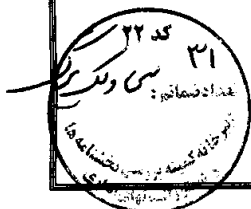 کد ۲۲
۳۱
تعداد ضمائم:
سی و یک برگ
دبیرخانه کمیته بررسی بخشنامه ها